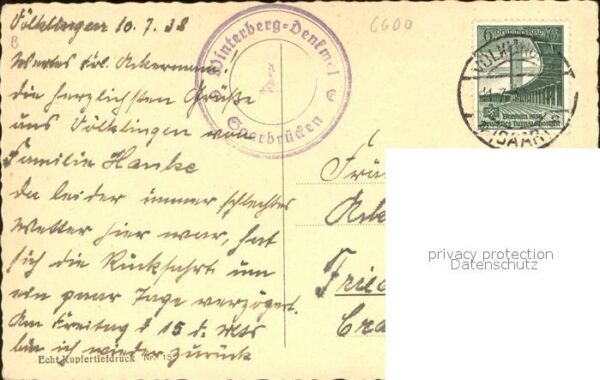 Völklingen 10.7.38
Wertes Frl. Ackermann
die herzlichsten Grüße
aus Völklingen von
Familie Hanke
Da leider immer schlechtes
Wetter hier war, hat
sich die Rückfahrt um
ein paar Tage verzögert.
Am Freitag d 15 d. Mts
bin ich wieder zurück
Echt Kupfertiefdruck
Winterberg-Denkmal
Saarbrücken
6600
6
Breslau 1938
Deutsches Turn-
(SAAR)
Frä
Ack
Fried
Cra
privacy protection
Datenschutz